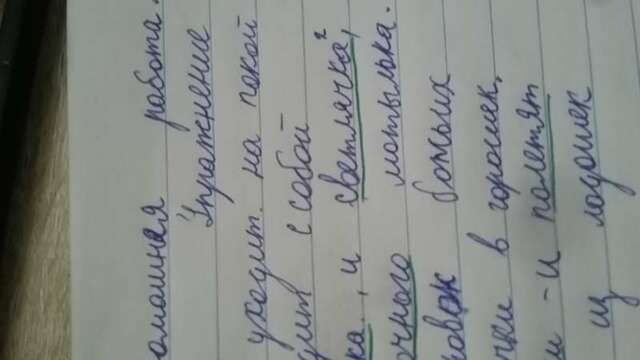 омашная работа.
Упражнение
уходит. на покой
дит с собой
ка., и светлячка²,
очного мотылька.
ровок божьих
чки в горошек,
м - и полетят
из ладошек